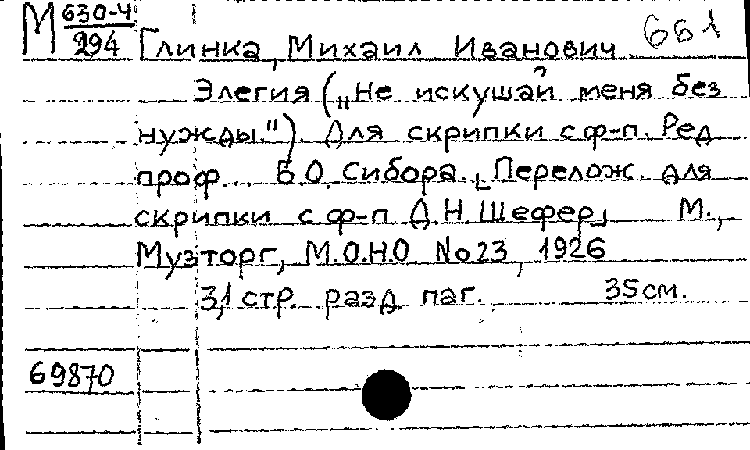 М 630-4
294
Глинка, Михаил Иванович 661
Элегия („Не искушай меня без
нужды."). Для скрипки с ф-п. Ред
проф. Б.О. Сибора. [Перелож. для
скрипки с ф-п Д.Н. Шефер] М.,
Музторг, М.О.Н.О No 23, 1926
3,1 стр. разд паг. 35 см.
69870